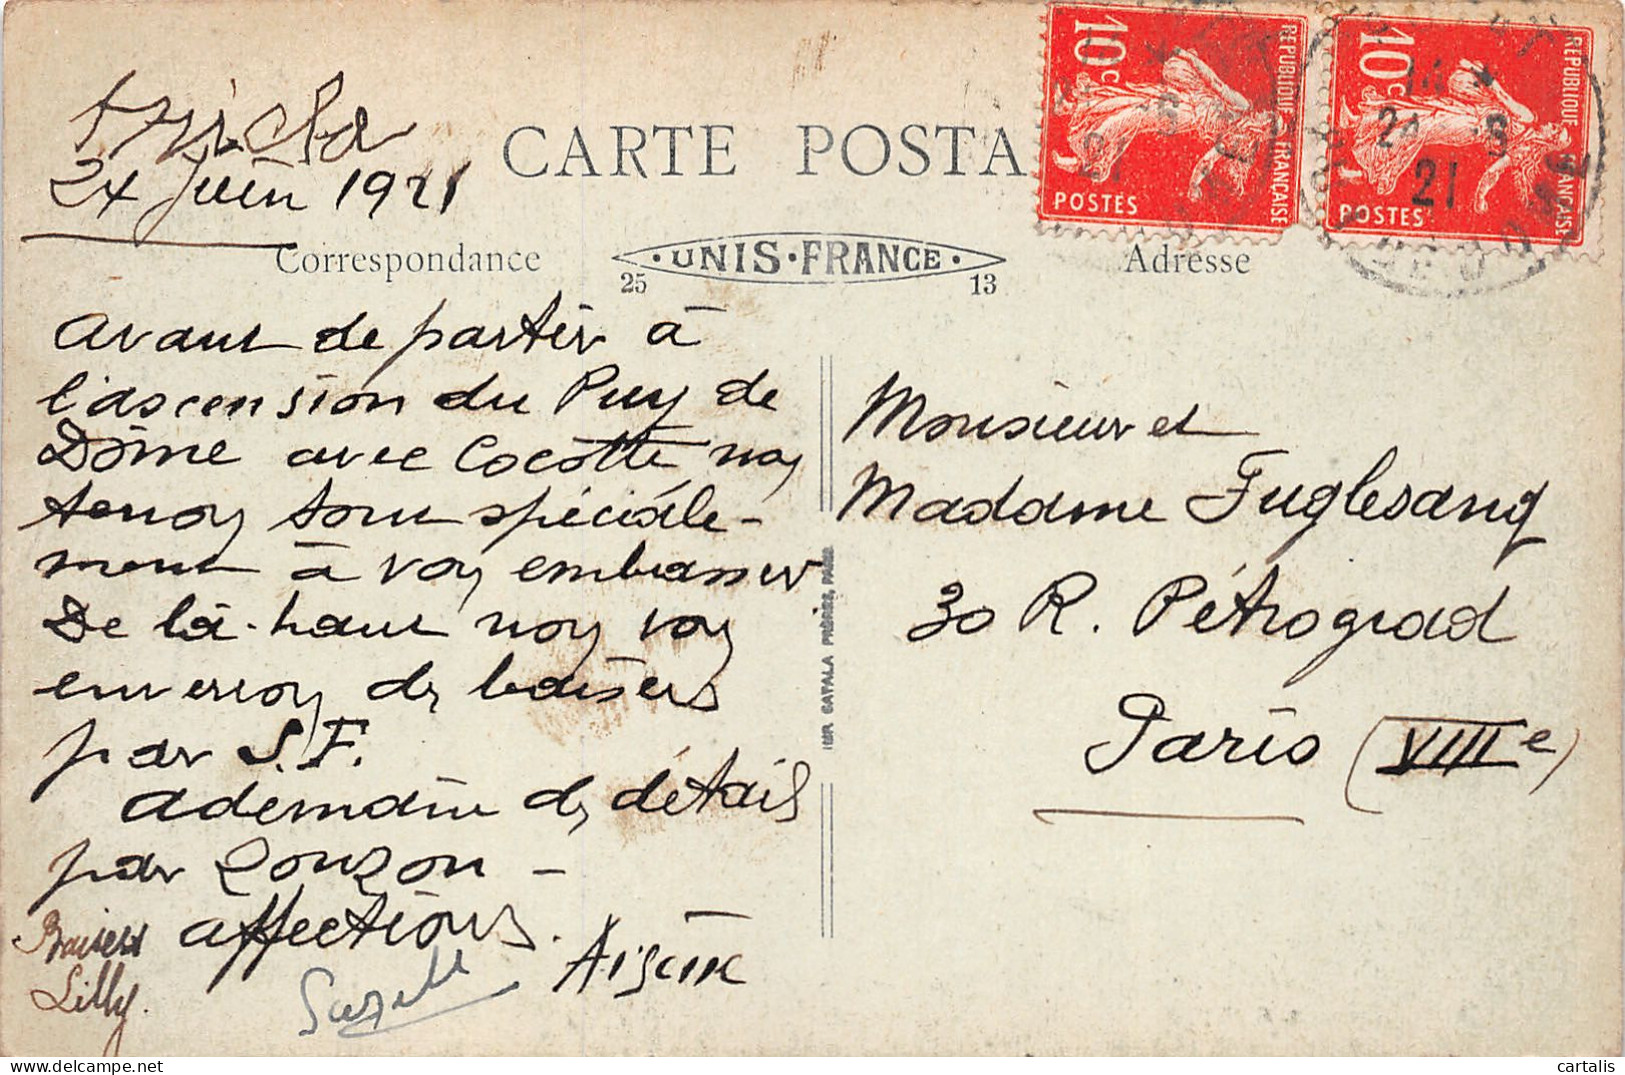 24 Juin 1921
CARTE POSTA
Correspondance
UNIS·FRANCE
25 13
Adresse
10c
POSTES
REPUBLIQUE FRANÇAISE
10c
POSTES
REPUBLIQUE FRANÇAISE
21
24
21
avant de partir à
l'ascension du Puy de
Dôme avec Cocotte nous
tenons tous spéciale-
ment à vous embrasser
De là-haut nous vous
enverrons des baisers
par S.F.
à demain des détails
par Zouzou -
affections.
Baisers
Lilly.
Suzette
Monsieur et
Madame Fuglesang
30 R. Pétrograd
Paris (VIIIe)
IMP. CATALA FRÈRES, PARIS
cartalis